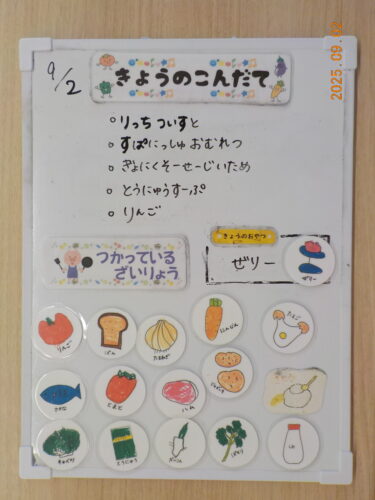 2025.09.02
9/2
きょうのこんだて
○りっち ついすと
○すぱにっしゅ おむれつ
○ぎょにくそーせーじいため
○とうにゅうすーぷ
○りんご
きょうのおやつ
ゼリー
ゼリー
つかっている
ざいりょう
りんご
ぱん
たまねぎ
にんじん
たまご
さかな
とまと
にく
じゃがいも
キャベツ
とうにゅう
ぱせり